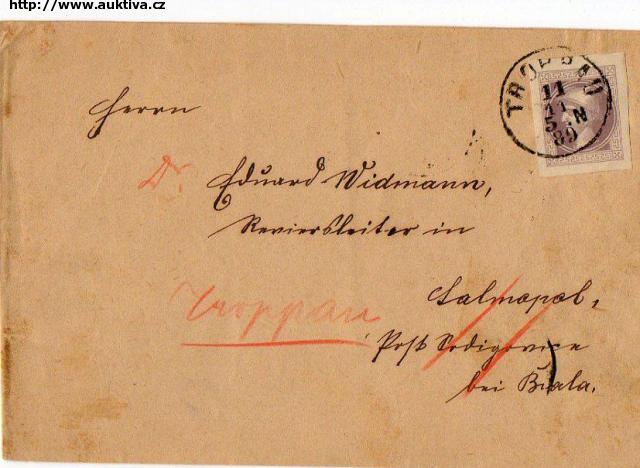 http://www.auktiva.cz
TROPPAU
11
11
5.N
89
Herrn
Dr. Eduard Widmann,
Reviersleiter in
Salmopol,
Troppau
Post
bei Biala.